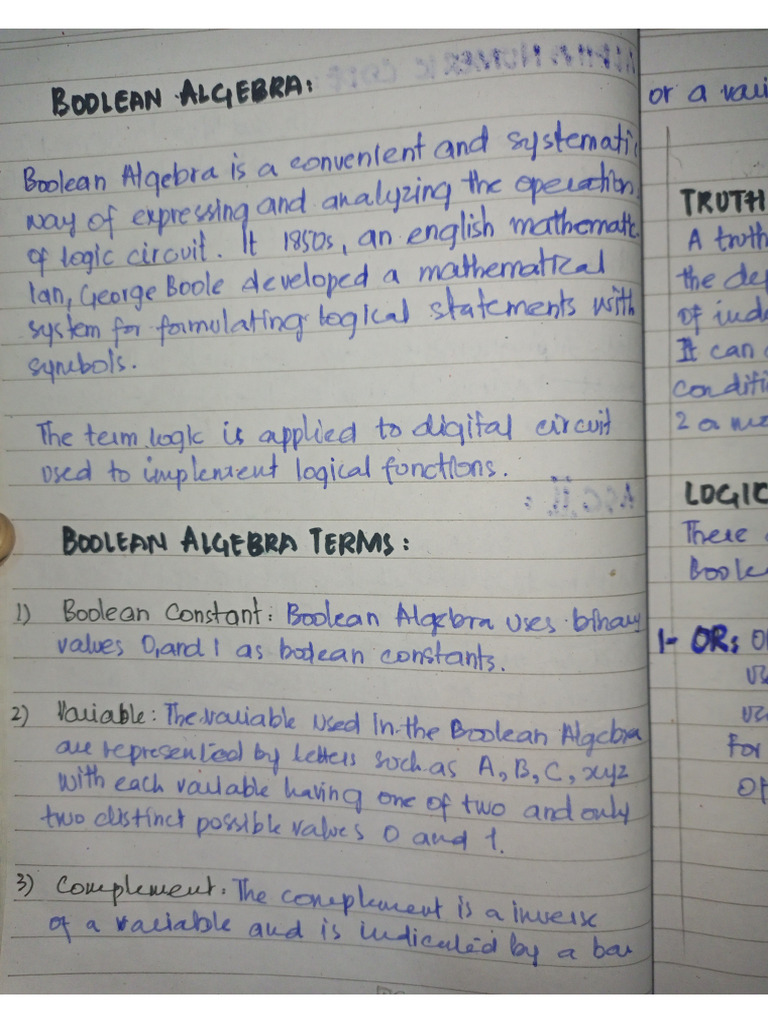 BOOLEAN ALGEBRA:
Boolean Algebra is a convenient and systemati
way of expressing and analyzing the operation
of logic circuit. It 1850s, an english mathemati
ian, George Boole developed a mathematical
system for formulating logical statements with
symbols.
The term logic is applied to digital circuit
used to implement logical functions.
BOOLEAN ALGEBRA TERMS:
1) Boolean Constant: Boolean Algebra uses binary
values 0, and 1 as boolean constants.
2) Variable: The variable used in the Boolean Algebra
are represented by letters such as A, B, C, xyz
with each variable having one of two and only
two distinct possible values 0 and 1.
3) Complement: The complement is a inverse
of a variable and is indicated by a bar
or a vari
TRUTH
A truth
the dep
of inde
It can
conditi
2 a
LOGIC
There
Boole
1- OR:
For